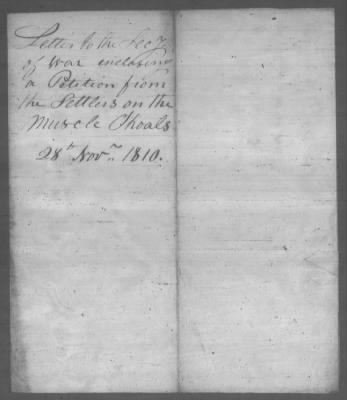 Letter to the Secy
of War enclosing
a Petition from
the Settlers on the
Muscle Shoals
28th Novr 1810.